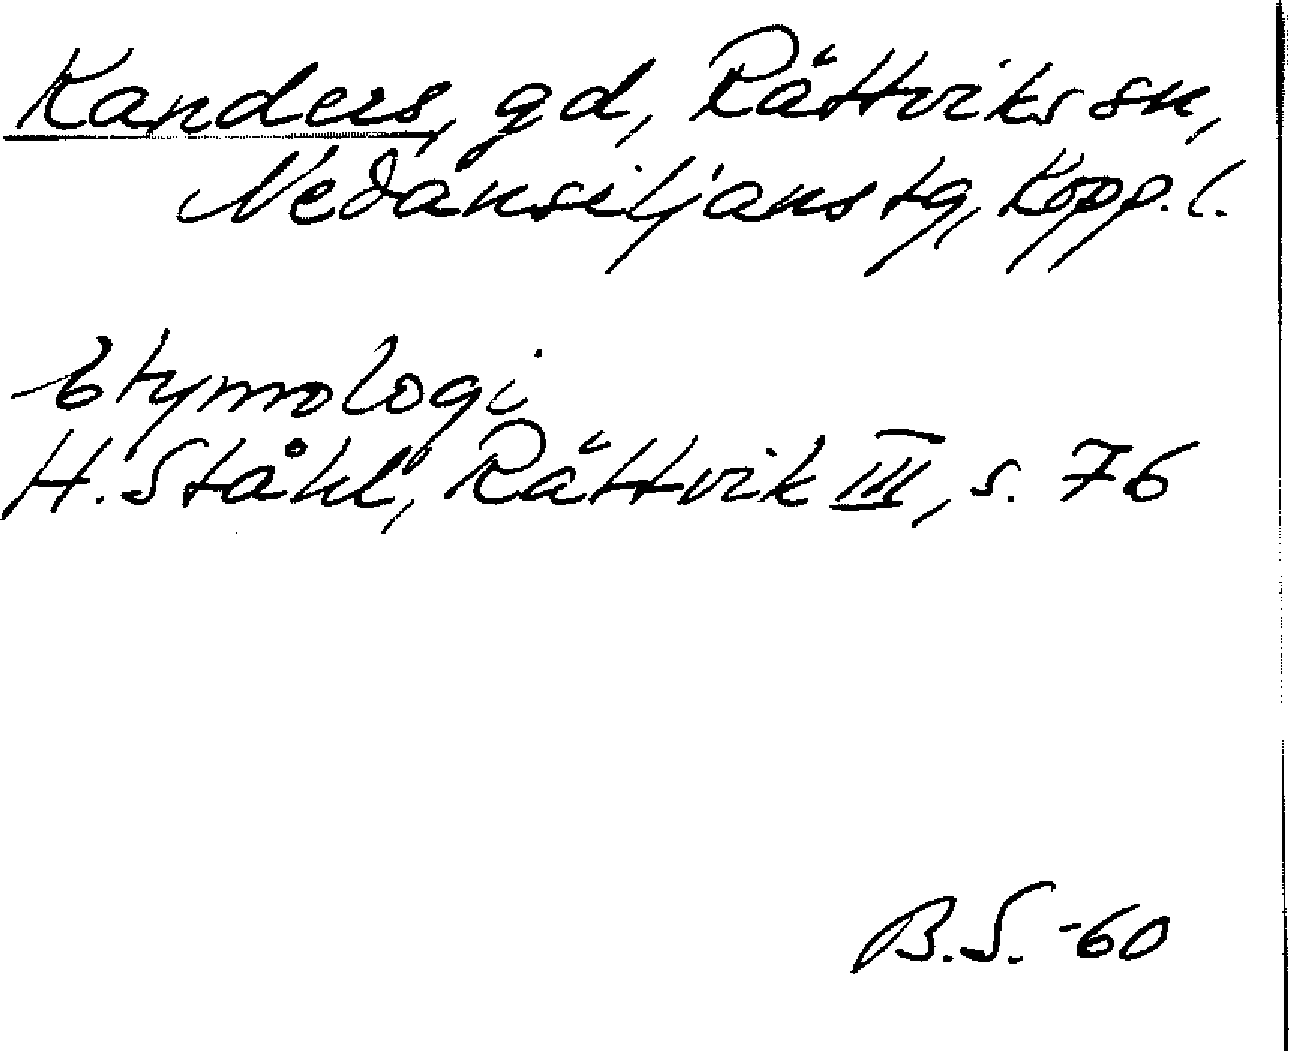 Kanders, gd, Rättviks sn,
Nedansiljans tg, Kopp. l.
Etymologi
H. Ståhl, Rättvik III, s. 76
B.S. -60